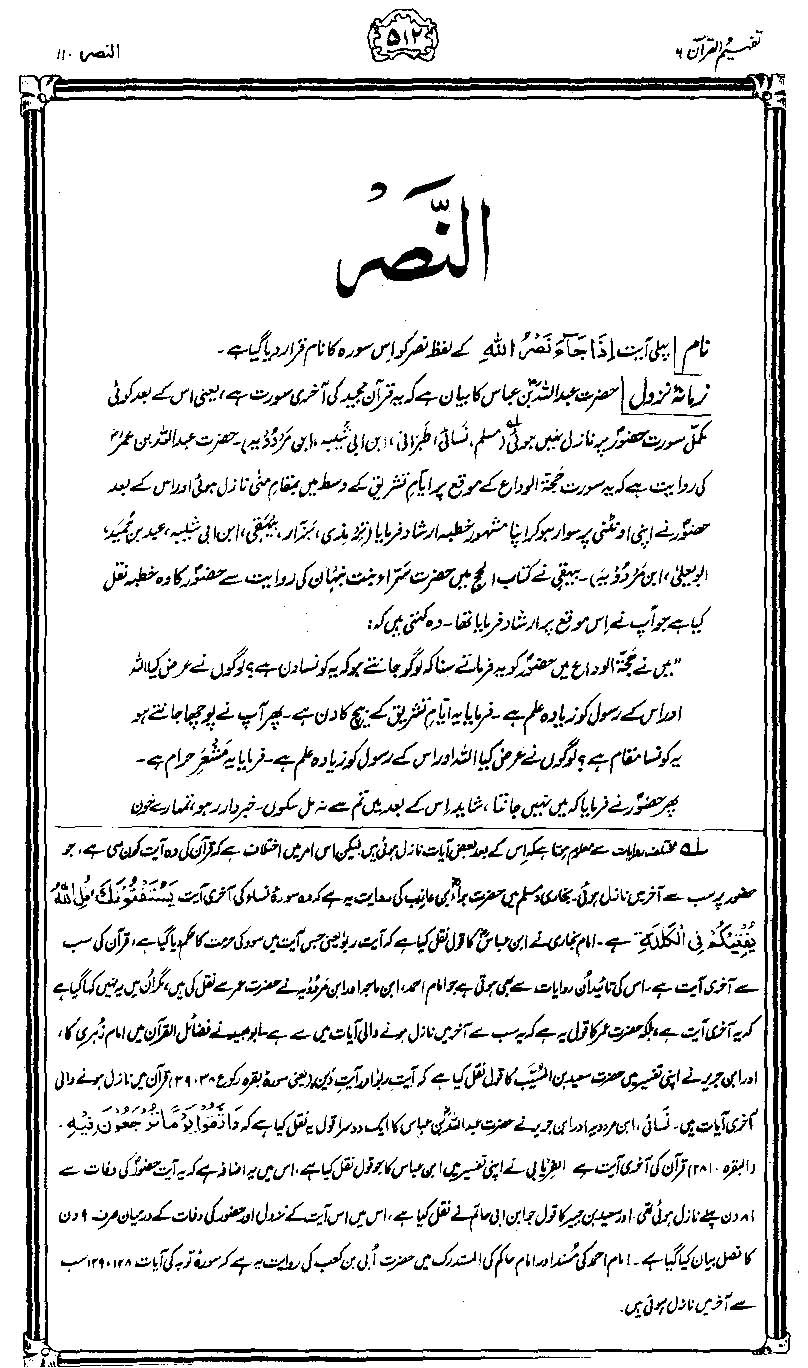 تفہیم القرآن ۶
۵۱۲
النصر ۱۱۰
النَّصْر
نام پہلی آیت إِذَا جَآءَ نَصْرُ اللّٰهِ کے لفظ نصر کو اِس سورہ کا نام قرار دیا گیا ہے۔
زمانۂ نزول حضرت عبداللہ بن عباس کا بیان ہے کہ یہ قرآن مجید کی آخری سورت ہے، یعنی اس کے بعد کوئی
مکمل سورت حضورؐ پر نازل نہیں ہوئی۱؎ (مسلم، نسائی، طَبَرانی، ابن ابی شَیبہ، ابن مَرْدُوْیہ)۔ حضرت عبداللہ بن عمرؓ
کی روایت ہے کہ یہ سورت حَجّۃ الوداع کے موقع پر ایامِ تشریق کے وسط میں بمقامِ منیٰ نازل ہوئی اور اس کے بعد
حضورؐ نے اپنی اونٹنی پر سوار ہو کر اپنا مشہور خطبہ ارشاد فرمایا (ترمذی، بزّار، بیہقی، ابن ابی شیبہ، عبد بن حُمید،
ابو یعلیٰ، ابن مَرْدُوْیہ)۔ بیہقی نے کتاب الحج میں حضرت سَرّاء بنت نبہان کی روایت سے حضورؐ کا وہ خطبہ نقل
کیا ہے جو آپ نے اِس موقع پر ارشاد فرمایا تھا۔ وہ کہتی ہیں کہ:
”میں نے حجۃ الوداع میں حضورؐ کو یہ فرماتے سنا کہ لوگو جانتے ہو کہ یہ کونسا دن ہے؟ لوگوں نے عرض کیا اللہ
اور اس کے رسول کو زیادہ علم ہے۔ فرمایا یہ ایام تشریق کے بیچ کا دن ہے۔ پھر آپ نے پوچھا جانتے ہو
یہ کونسا مقام ہے؟ لوگوں نے عرض کیا اللہ اور اس کے رسول کو زیادہ علم ہے۔ فرمایا یہ مَشْعَرِ حرام ہے۔
پھر حضورؐ نے فرمایا کہ میں نہیں جانتا، شاید اِس کے بعد میں تم سے نہ مل سکوں۔ خبردار رہو، تمہارے خون
۱؎ مختلف روایات سے معلوم ہوتا ہے کہ اِس کے بعد بعض آیات نازل ہوئی ہیں لیکن اس امر میں اختلاف ہے کہ قرآن کی وہ آیت کونسی ہے، جو
حضور پر سب سے آخر میں نازل ہوئی۔ بخاری و مسلم میں حضرت براءؓ بن عازب کی روایت یہ ہے کہ وہ سورۂ نساء کی آخری آیت يَسْتَفْتُوْنَكَ قُلِ اللّٰهُ
يُفْتِيْكُمْ فِى الْكَلٰلَةِ ہے۔ امام بخاری نے ابن عباسؓ کا قول نقل کیا ہے کہ آیت ربوٰ یعنی جس آیت میں سود کی حرمت کا حکم دیا گیا ہے، قرآن کی سب
سے آخری آیت ہے۔ اس کی تائید اُن روایات سے بھی ہوتی ہے جو امام احمد، ابن ماجہ اور ابن مَرْدُوْیہ نے حضرت عمر سے نقل کی ہیں، مگر اُن میں یہ نہیں کہا گیا ہے
کہ یہ آخری آیت ہے، بلکہ حضرت عمر کا قول یہ ہے کہ یہ سب سے آخر میں نازل ہونے والی آیات میں سے ہے۔ ابو عبید نے فضائل القرآن میں امام زہری کا،
اور ابن جریر نے اپنی تفسیر میں حضرت سعید بن المُسَیَّب کا قول نقل کیا ہے کہ آیت ربوٰ اور آیتِ دَین (یعنی سورۂ بقرہ رکوع ۳۸-۳۹) قرآن میں نازل ہونے والی
آخری آیات ہیں۔ نسائی، ابن مردویہ اور ابن جریر نے حضرت عبداللہؓ بن عباس کا ایک دوسرا قول یہ نقل کیا ہے کہ وَاتَّقُوْا يَوْمًا تُرْجَعُوْنَ فِيْهِ۔
(البقرہ ۲۸۱) قرآن کی آخری آیت ہے۔ الفریابی نے اپنی تفسیر میں ابن عباس کا جو قول نقل کیا ہے، اس میں یہ اضافہ ہے کہ یہ آیت حضورؐ کی وفات سے
۸۱ دن پہلے نازل ہوئی تھی۔ اور سعید بن جبیر کا قول جو ابن ابی حاتم نے نقل کیا ہے، اس میں اس آیت کے نزول اور حضور کی وفات کے درمیان صرف ۹ دن
کا فصل بیان کیا گیا ہے۔ امام احمد کی مُسند اور امام حاکم کی المستدرک میں حضرت اُبیّ بن کعب کی روایت یہ ہے کہ سورۂ توبہ کی آیات ۱۲۸-۱۲۹ سب
سے آخر میں نازل ہوئی ہیں۔